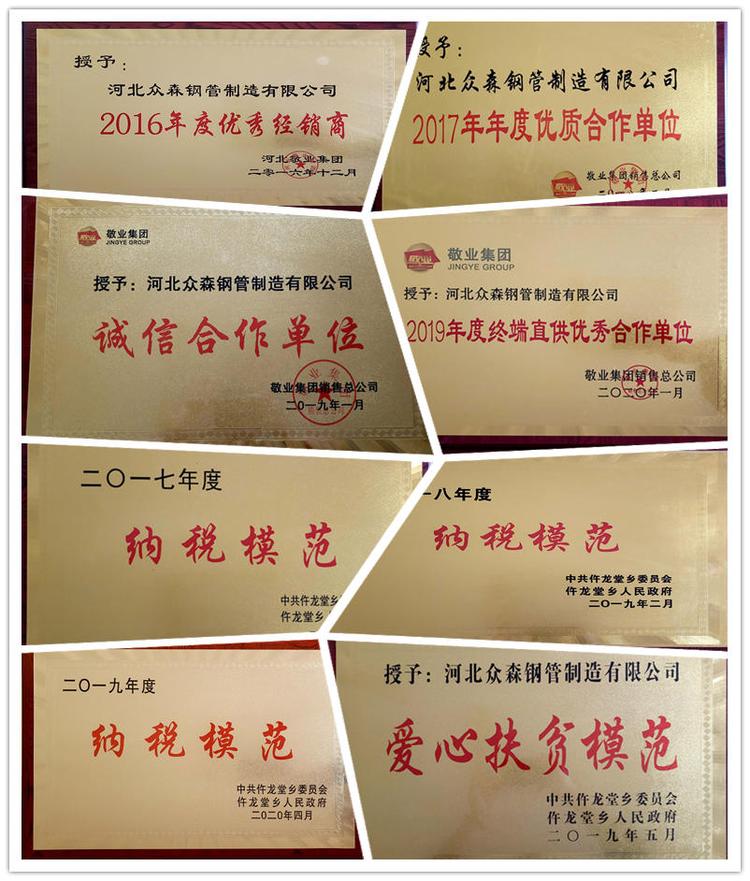 授予：
河北众森钢管制造有限公司
2016年度优秀经销商
河北敬业集团
二零一六年十二月
授予：
河北众森钢管制造有限公司
2017年年度优质合作单位
敬业集团销售总公司
敬业集团
JINGYE GROUP
授予：河北众森钢管制造有限公司
诚信合作单位
敬业集团销售总公司
二〇一九年一月
敬业集团
JINGYE GROUP
授予：河北众森钢管制造有限公司
2019年度终端直供优秀合作单位
敬业集团销售总公司
二〇二〇年一月
二〇一七年度
纳税模范
中共仵龙堂乡
仵龙堂乡人民政府
一八年度
纳税模范
中共仵龙堂乡委员会
仵龙堂乡人民政府
二〇一九年二月
二〇一九年度
纳税模范
中共仵龙堂乡委员会
仵龙堂乡人民政府
二〇二〇年四月
授予：河北众森钢管制造有限公司
爱心扶贫模范
中共仵龙堂乡委员会
仵龙堂乡人民政府
二〇一九年五月